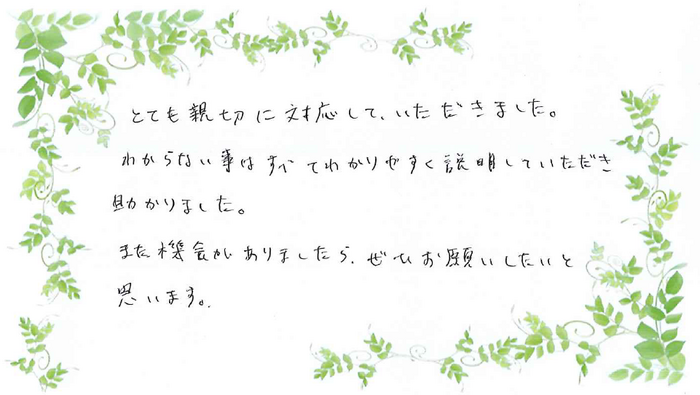 とても親切に対応して、いただきました。
わからない事はすべてわかりやすく説明していただき
助かりました。
また機会がありましたら、ぜひお願いしたいと
思います。